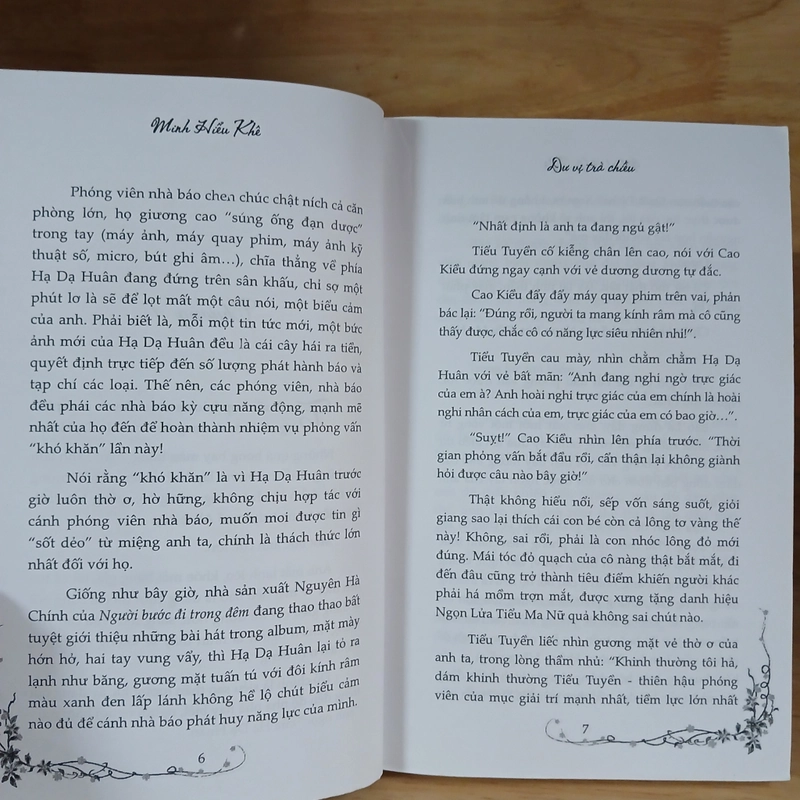 Minh Hiểu Khê
Phóng viên nhà báo chen chúc chật ních cả căn
phòng lớn, họ giương cao “súng ống đạn dược”
trong tay (máy ảnh, máy quay phim, máy ảnh kỹ
thuật số, micro, bút ghi âm…), chĩa thẳng về phía
Hạ Dạ Huân đang đứng trên sân khấu, chỉ sợ một
phút lơ là sẽ để lọt mất một câu nói, một biểu cảm
của anh. Phải biết là, mỗi một tin tức mới, một bức
ảnh mới của Hạ Dạ Huân đều là cái cây hái ra tiền,
quyết định trực tiếp đến số lượng phát hành báo và
tạp chí các loại. Thế nên, các phóng viên, nhà báo
đều phái các nhà báo kỳ cựu năng động, mạnh mẽ
nhất của họ đến để hoàn thành nhiệm vụ phỏng vấn
“khó khăn” lần này!
Nói rằng “khó khăn” là vì Hạ Dạ Huân trước
giờ luôn thờ ơ, hờ hững, không chịu hợp tác với
cánh phóng viên nhà báo, muốn moi được tin gì
“sốt dẻo” từ miệng anh ta, chính là thách thức lớn
nhất đối với họ.
Giống như bây giờ, nhà sản xuất Nguyên Hà
Chính của Người bước đi trong đêm đang thao thao bất
tuyệt giới thiệu những bài hát trong album, mặt mày
hớn hở, hai tay vung vẩy, thì Hạ Dạ Huân lại tỏ ra
lạnh như băng, gương mặt tuấn tú với đôi kính râm
màu xanh đen lấp lánh không hề lộ chút biểu cảm
nào đủ để cánh nhà báo phát huy năng lực của mình.
6
Dư vị trà chiều
“Nhất định là anh ta đang ngủ gật!”
Tiểu Tuyền cố kiễng chân lên cao, nói với Cao
Kiều đứng ngay cạnh với vẻ dương dương tự đắc.
Cao Kiều đẩy đẩy máy quay phim trên vai, phản
bác lại: “Đúng rồi, người ta mang kính râm mà cô cũng
thấy được, chắc cô có năng lực siêu nhiên nhỉ!”.
Tiểu Tuyền cau mày, nhìn chằm chằm Hạ Dạ
Huân với vẻ bất mãn: “Anh đang nghi ngờ trực giác
của em à? Anh hoài nghi trực giác của em chính là hoài
nghi nhân cách của em, trực giác của em có bao giờ…”.
“Suỵt!” Cao Kiều nhìn lên phía trước. “Thời
gian phỏng vấn bắt đầu rồi, cẩn thận lại không giành
hỏi được câu nào bây giờ!”
Thật không hiểu nổi, sếp vốn sáng suốt, giỏi
giang sao lại thích cái con bé còn cả lông tơ vàng thế
này! Không, sai rồi, phải là con nhóc lông đỏ mới
đúng. Mái tóc đỏ quạch của cô nàng thật bắt mắt, đi
đến đâu cũng trở thành tiêu điểm khiến người khác
phải há mồm trợn mắt, được xưng tặng danh hiệu
Ngọn Lửa Tiểu Ma Nữ quả không sai chút nào.
Tiểu Tuyền liếc nhìn gương mặt vẻ thờ ơ của
anh ta, trong lòng thầm nhủ: “Khinh thường tôi hả,
dám khinh thường Tiểu Tuyền - thiên hậu phóng
viên của mục giải trí mạnh nhất, tiềm lực lớn nhất
7